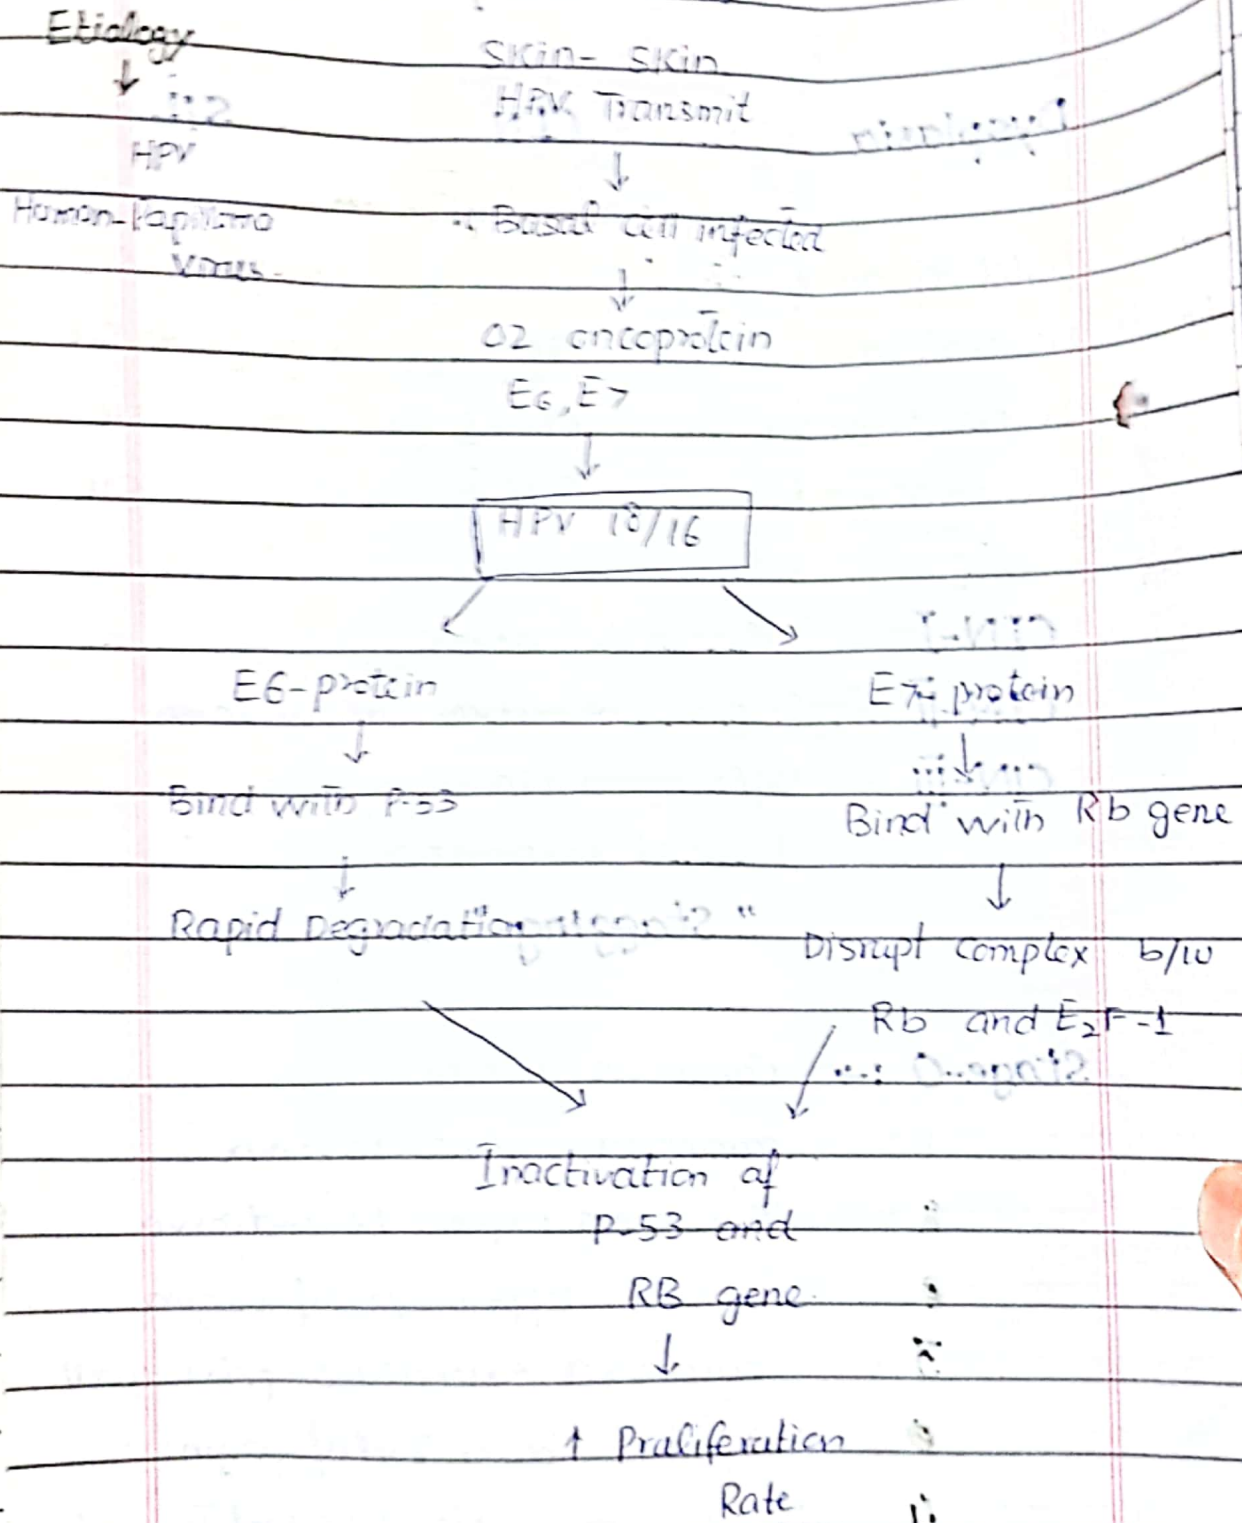 Etiology
↓
HPV
Human-Papilloma
Virus
Skin- Skin
HPV Transmit
↓
Basal cell infected
↓
02 oncoprotein
E6, E7
↓
HPV 18/16
E6-protein
↓
Bind with P-53
↓
Rapid Degradation
E7- protein
↓
Bind with Rb gene
↓
Disrupt complex b/w
Rb and E2F-1
Inactivation of
P-53 and
RB gene
↓
↑ Praliferation
Rate